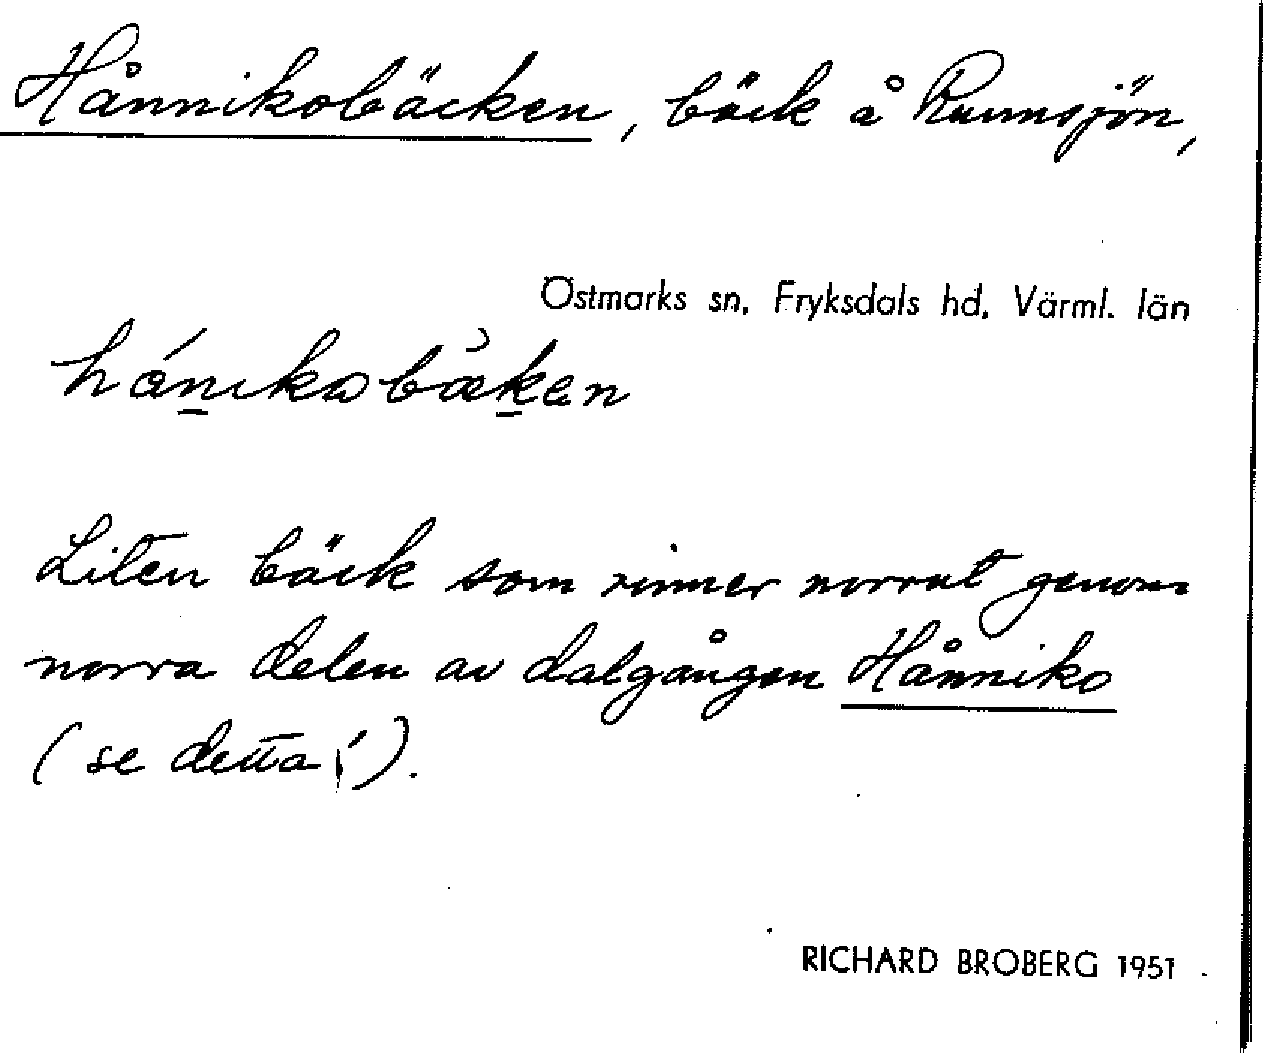 Hånnikobäcken, bäck å Runnsjön,
Östmarks sn, Fryksdals hd, Värml. län
Liten bäck som rinner norrut genom
norra delen av dalgången Hånniko
(se detta!).
RICHARD BROBERG 1951